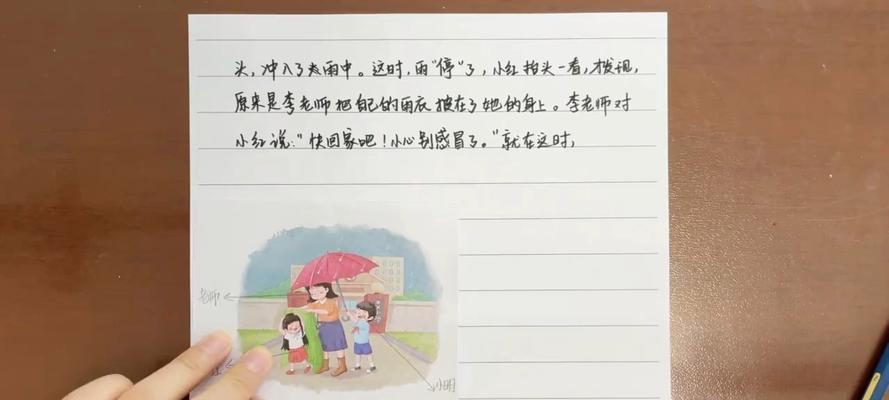 头，冲入了大雨中。这时，雨“停”了，小红抬头一看，才发现，
原来是李老师把自己的雨衣披在了她的身上。李老师对
小红说：“快回家吧！小心别感冒了。”就在这时，
老师
红
小明